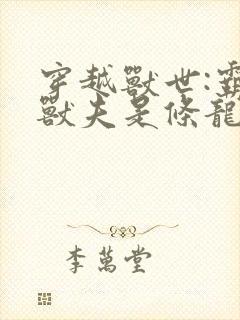 穿越獸世:霸
獸夫是條龍
李萬堂